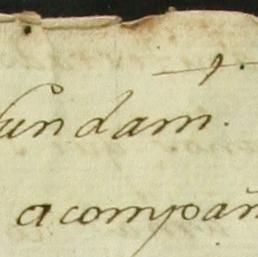 fundam.
acompañ